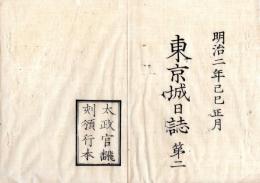 明治二年己巳正月
東京城日誌 第二
太政官
刻頒行本